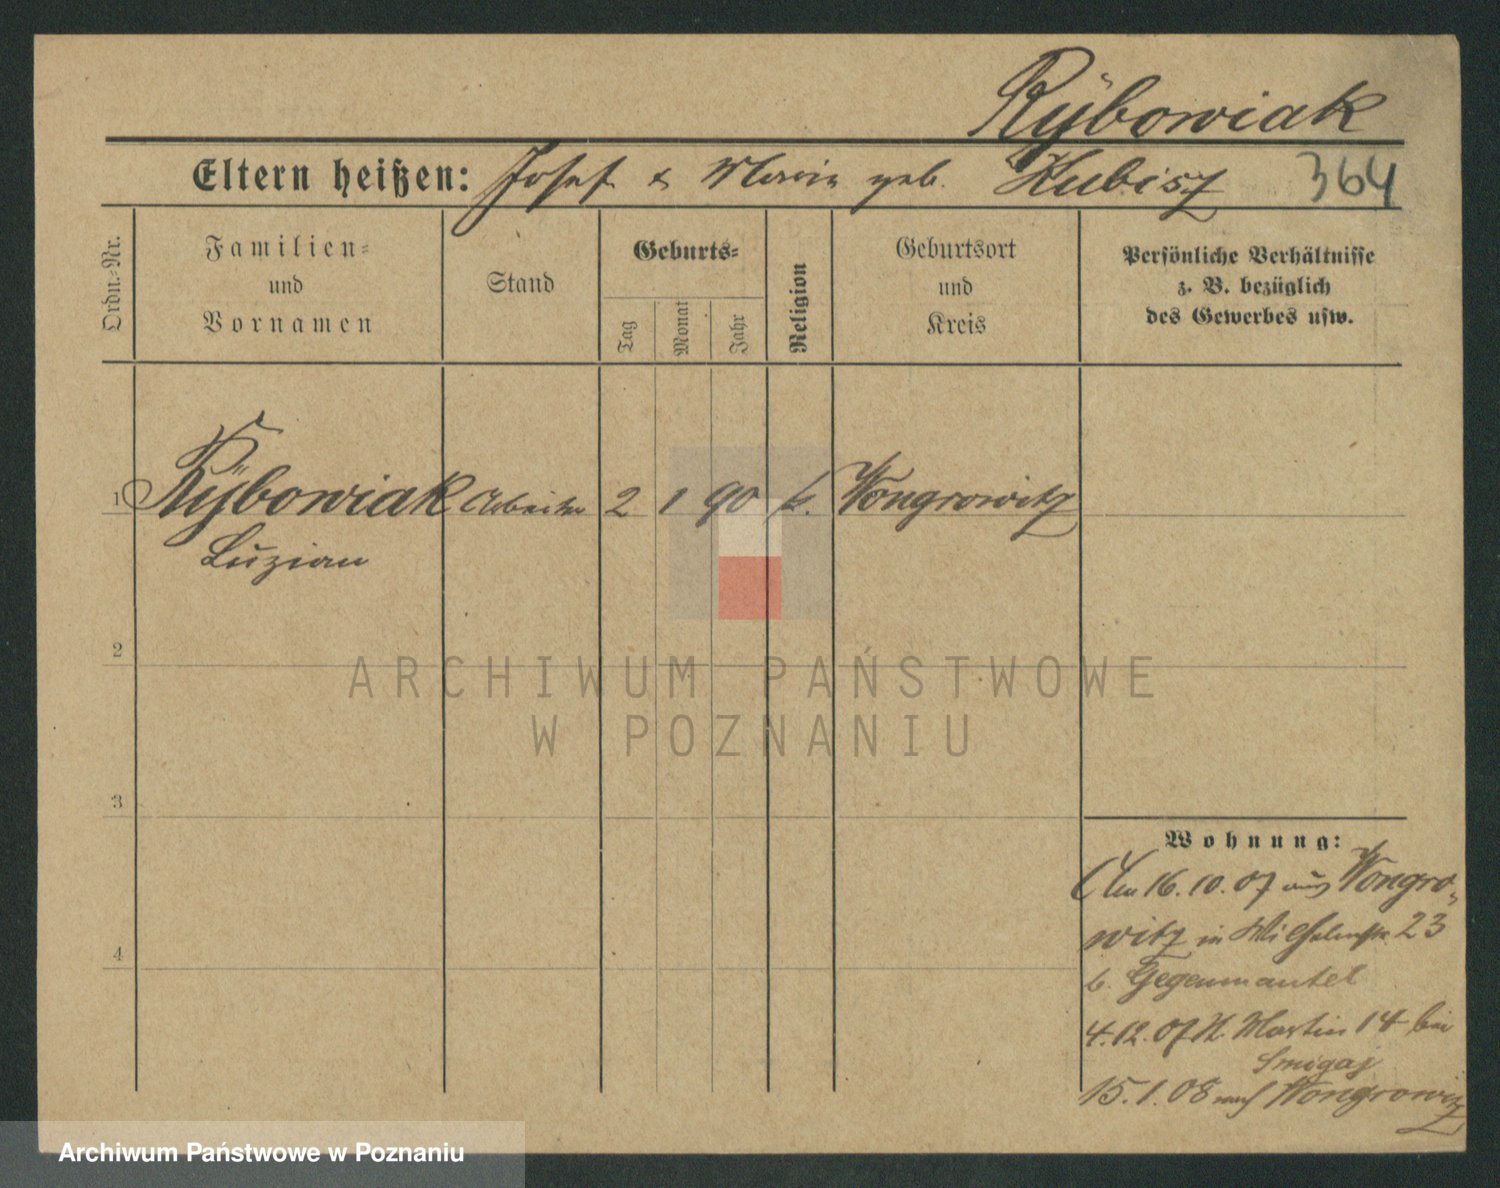 Rÿbowiak
Eltern heißen: Josef & Maria geb. Kubisz 364
Ordn.-Nr.
Familien-
und
Vornamen
Stand
Geburts-
Tag
Monat
Jahr
Religion
Geburtsort
und
Kreis
Persönliche Verhältnisse
z. B. bezüglich
des Gewerbes usw.
1 Rÿbowiak Arbeiter 2 1 90 k. Wongrowitz
Luzian
2
3
4
Wohnung:
Am 16.10.07 aus Wongro-
witz in Wilhelmstr. 23
b. Gegenmantel
4.12.07 St. Martin 14 bei
Smigaj
15.1.08 nach Wongrowitz
ARCHIWUM PAŃSTWOWE
W POZNANIU
Archiwum Państwowe w Poznaniu